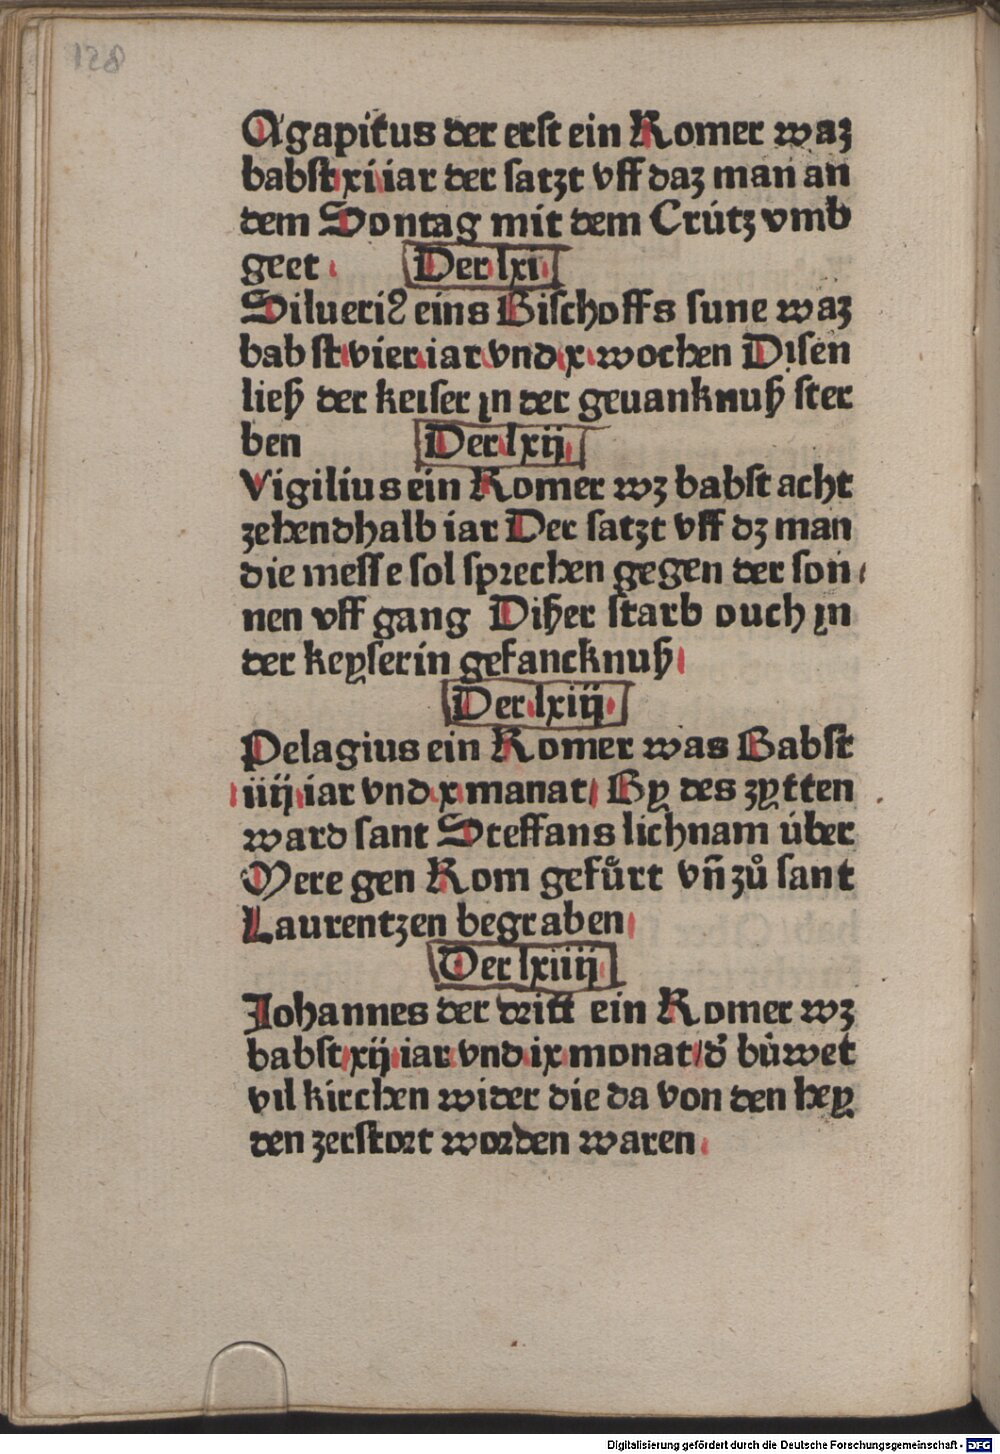 128
Agapitus der erst ein Romer waz
babst xi iar der satzt vff daz man an
dem Sontag mit dem Crútz vmb
geet Der lxi
Silueriꝰ eins Bischoffs sune waz
babst vier iar vnd x wochen Disen
ließ der keiser in der geuanknuß ster
ben Der lxij
Vigilius ein Romer wz babst acht
zehendhalb iar Der satzt vff dz man
die messe sol sprechen gegen der son
nen vff gang Dißer starb ouch in
der keyserin gefancknuß
Der lxiij
Pelagius ein Romer was Babst
iiij iar vnd x manat By des zytten
ward sant Steffans lichnam úber
Mere gen Rom gefuͤrt vn̄ zuͦ sant
Laurentzen begraben
Der lxiiij
Johannes der dritt ein Romer wz
babst xij iar vnd ix monat d' buͦwet
vil kirchen wider die da von den hey
den zerstort worden waren
Digitalisierung gefördert durch die Deutsche Forschungsgemeinschaft - DFG